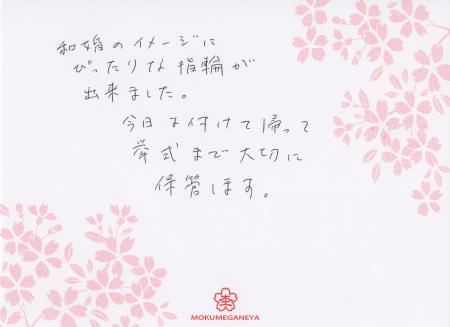 和婚のイメージに
ぴったりな指輪が
出来ました。
今日は付けて帰って
挙式まで大切に
保管します。
MOKUMEGANEYA